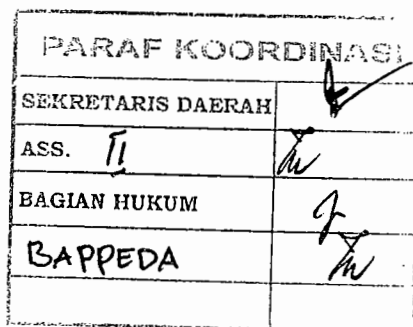 PARAF KOORDINASI
SEKRETARIS DAERAH
ASS. II
BAGIAN HUKUM
BAPPEDA